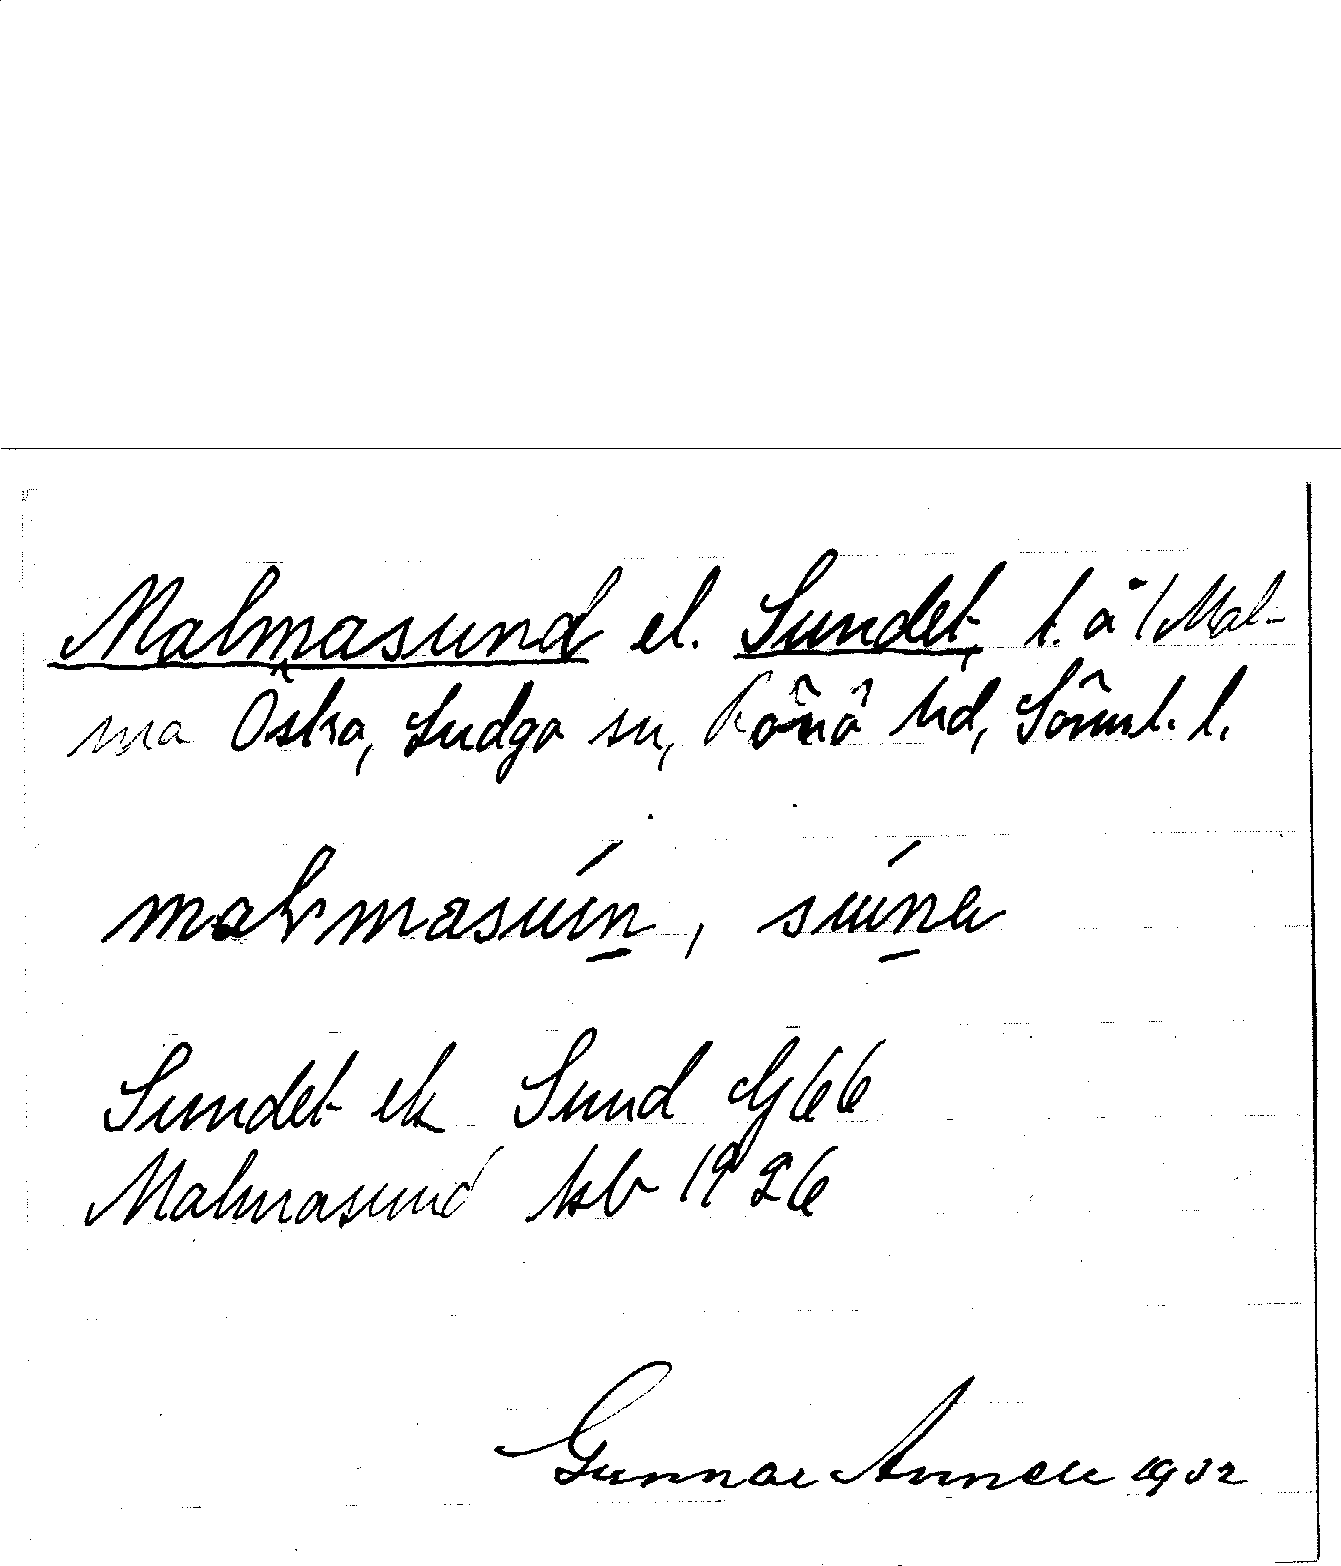 Malmasund el. Sundet, t. å 1 Mal-
ma Östra, Ludgo sn, Rönö hd, Sörml. l.
sund
Sundet ek Sund G 66
Malmasund kb 1926
Gunnar Annell 1932